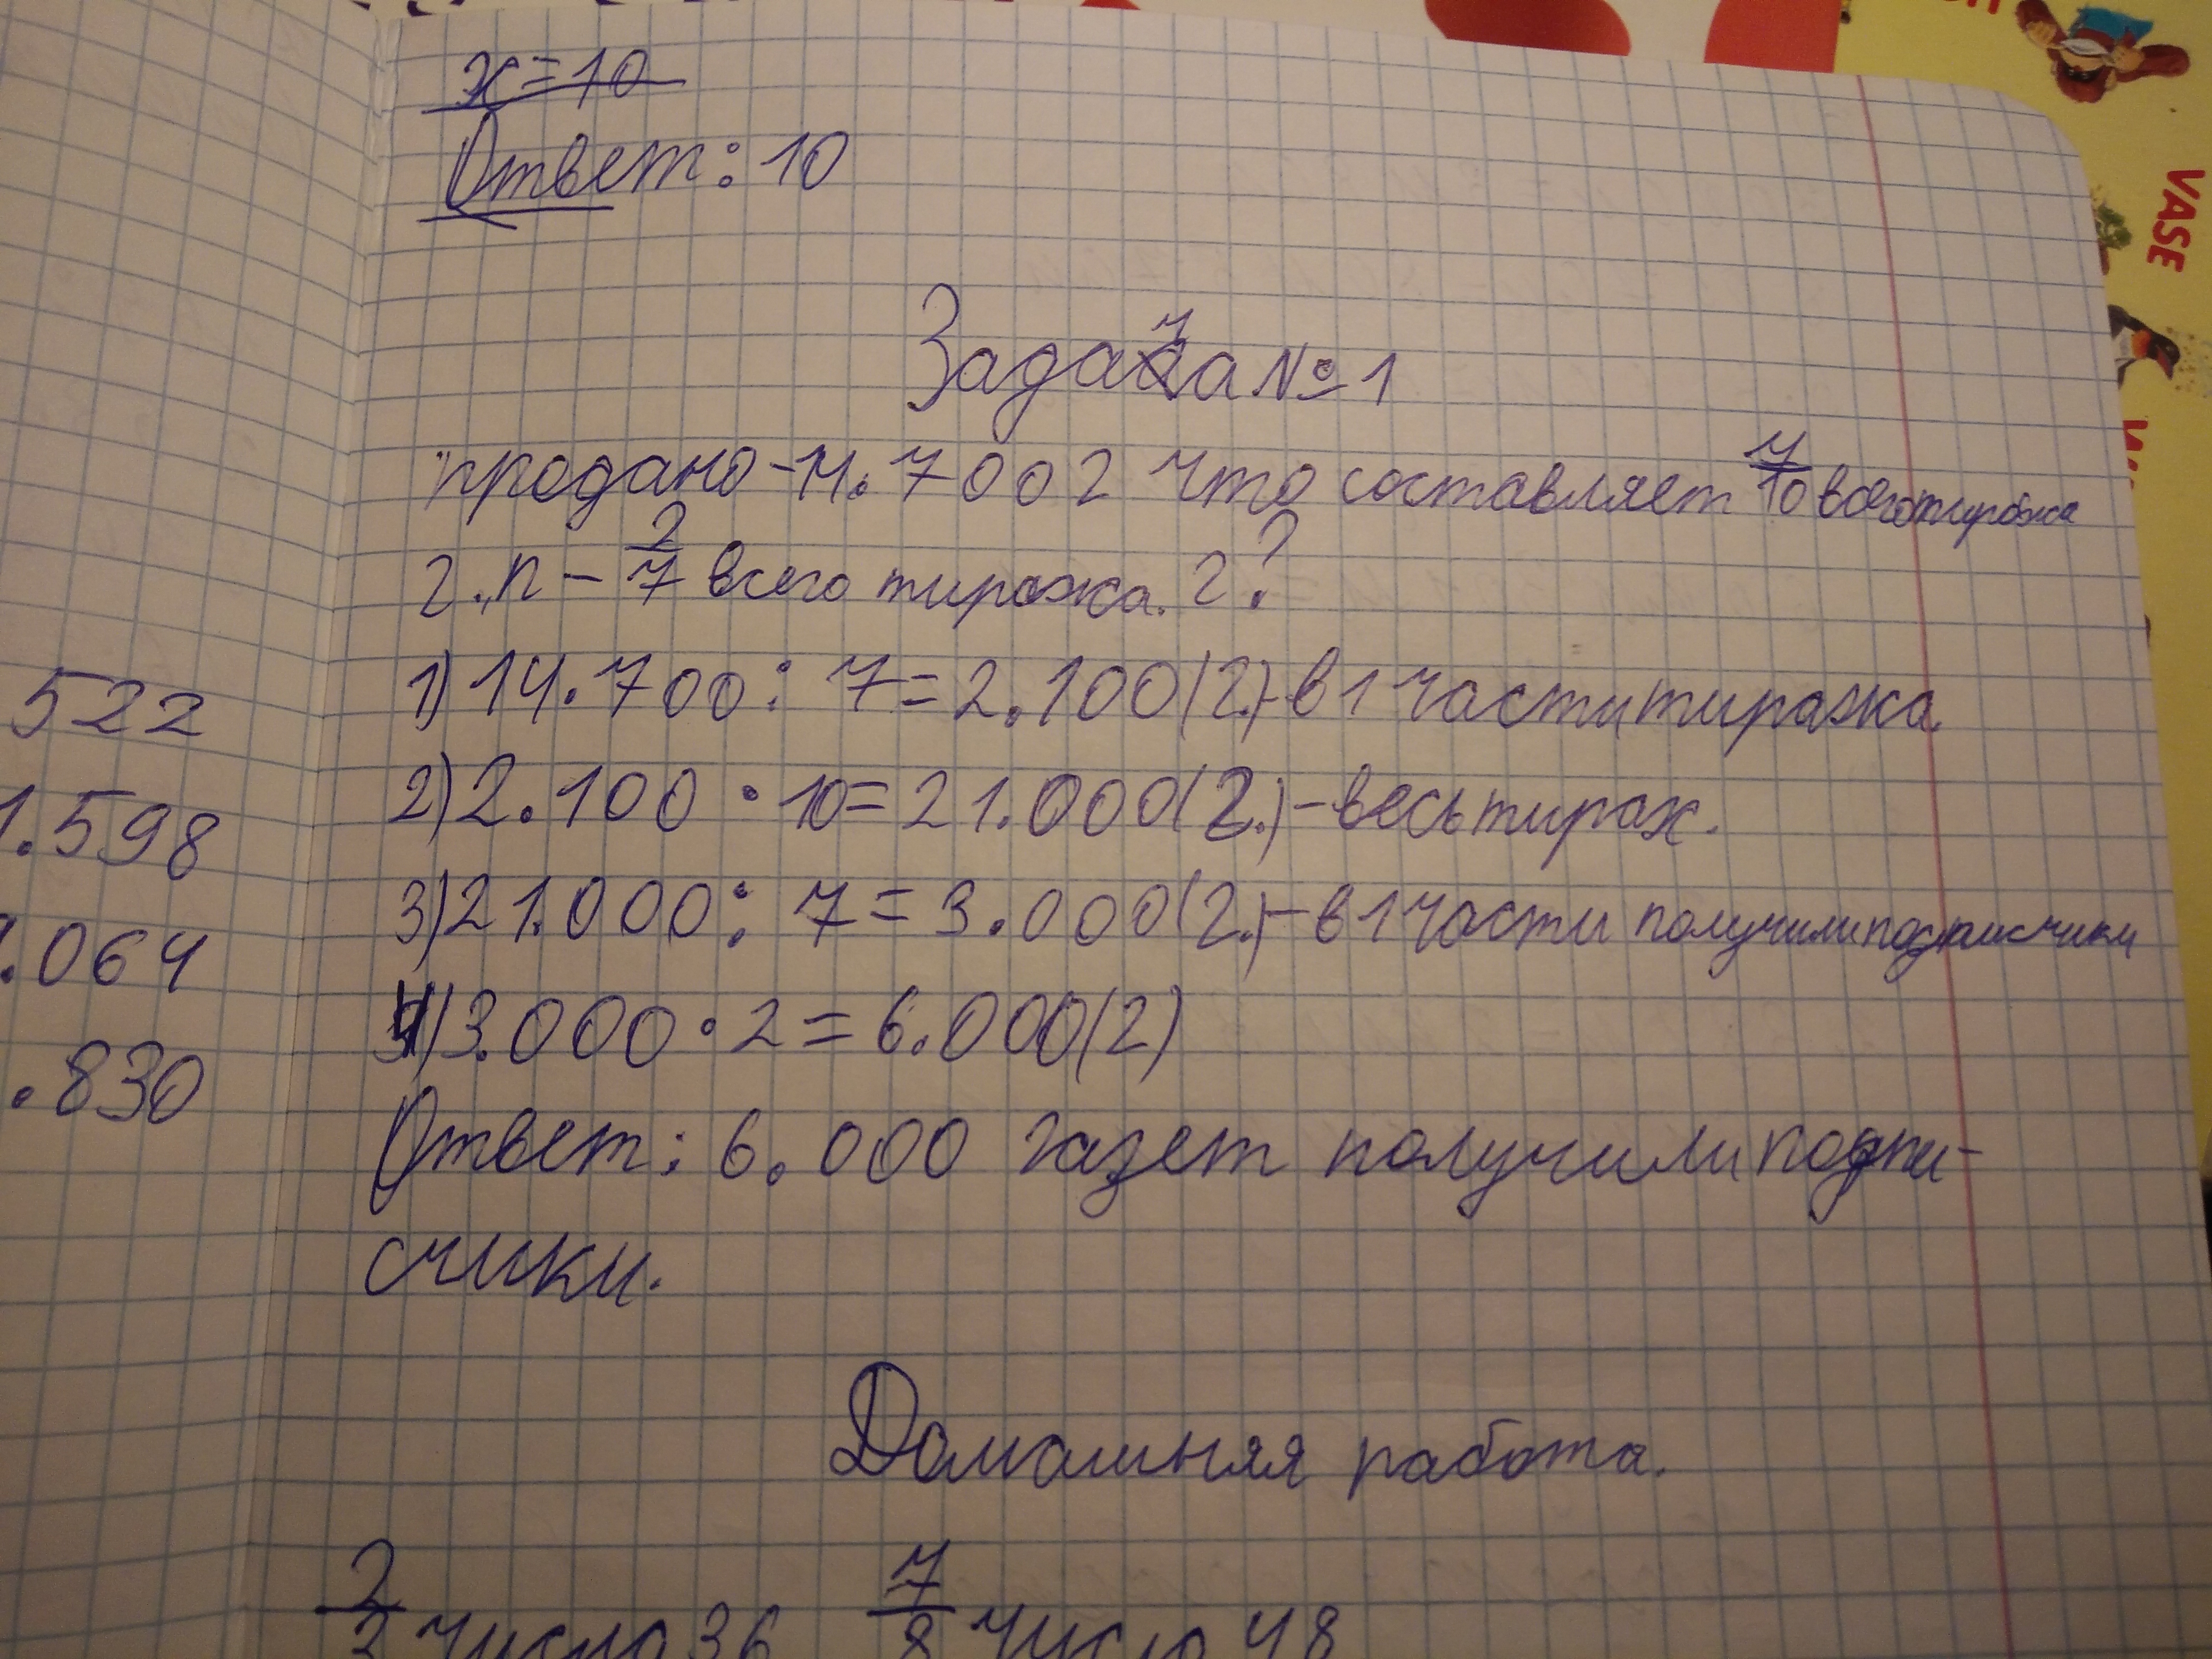 x=10
Ответ: 10
Задача №1
продано-14.700г что составляет 7/10 всего тиража
г.п - 2/7 всего тиража. г?
1) 14.700 : 7 = 2.100(г.)-в 1 части тиража.
2) 2.100 · 10 = 21.000(г.)-весь тираж.
3) 21.000 : 7 = 3.000(г.)-в 1 части получили подписчики
4) 3.000 · 2 = 6.000(г)
Ответ: 6.000 газет получили подпи-
счики.
Домашняя работа.
2/3 число 36 7/8 число 48
522
1.598
.064
.830
VASE